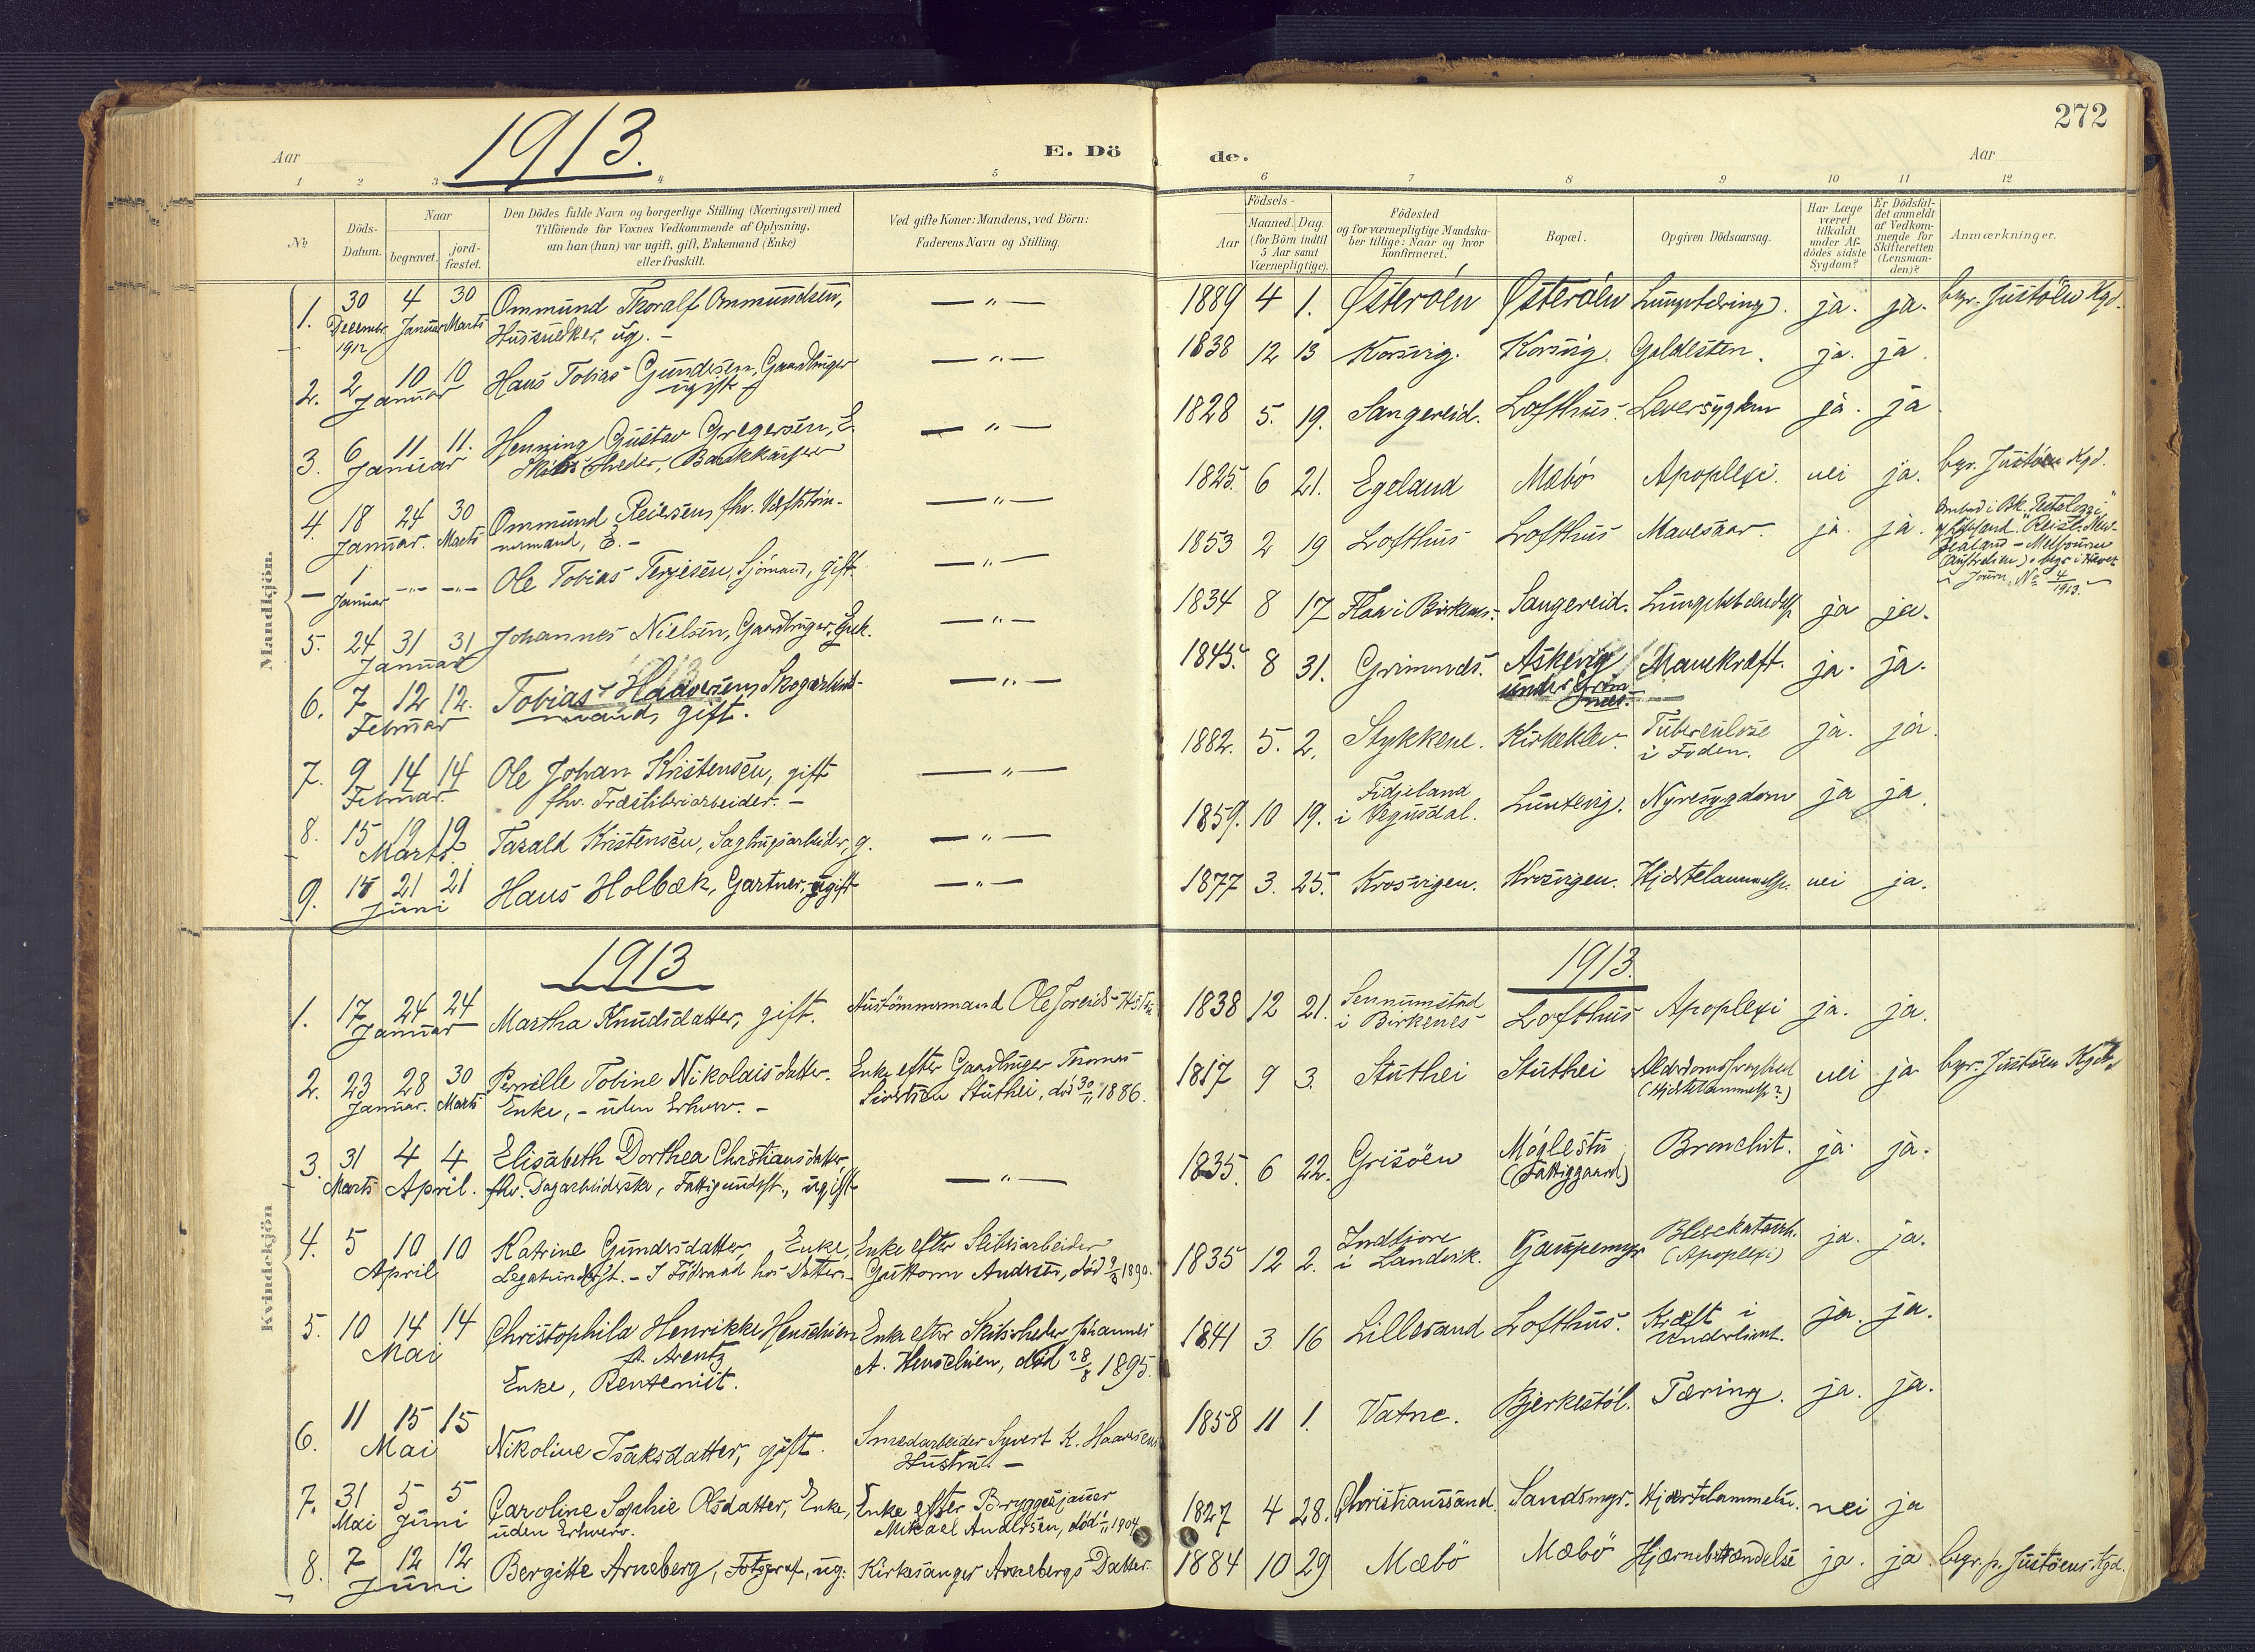 272
1913.
Aar
E. Dö
de.
Aar
1 2 3 4 5 6 7 8 9 10 11 12
No
Döds-
Datum.
Naar
begravet.
jord-
fæstet.
Den Dödes fulde Navn og borgerlige Stilling (Næringsvei) med
Tilföiende for Voxnes Vedkommende af Oplysning,
om han (hun) var ugift, gift, Enkemand (Enke)
eller fraskilt.
Ved gifte Koner: Mandens, ved Börn:
Faderens Navn og Stilling.
Födsels-
Aar
Maaned. Dag.
(for Börn indtil
5 Aar samt
Værnepligtige).
Födested
og for værnepligtige Mandska-
ber tillige: Naar og hvor
konfirmeret.
Bopæl.
Opgiven Dödsaarsag.
Har Læge
været
tilkaldt
under Af-
dödes sidste
Sygdom?
Er Dödsfal-
det anmeldt
af Vedkom-
mende for
Skifteretten
(Lensman-
den)?
Anmærkninger.
Mandkjön.
1. 30 Decembr. 1912 4 Januar 30 Marts Ommund Thoralf Ommundsen, ug. - — " — 1889 4 1. Østeröen Østeröen Lungetæring. ja. ja. begr. Justöen Kgd.
2. 2 10 10 Januar Hans Tobias Gundersen, Gaardbruger ugift — " — 1838 12 13 Korsvig. Korsvig. Galdesten. ja. ja
3. 6 11 11. Januar Henning Gustav Gregersen, E. Bankkasserer — " — 1828 5. 19. Sangereid. Lofthus. Leversygdom ja. ja
4. 18 24 Januar. 30 Marts Ommund Reiersen, fhv. E. - — " — 1825 6 21. Egeland Mæbö Apoplexi. nei ja. begr. Justöen Kgd.
— 1 Januar -"- -"- Ole Tobias Terjesen, Sjömand, gift. — " — 1853 2 19 Lofthus Lofthus ja. ja. Ombord i Bk. "Pestalozzi"
Zealand - Melbourne
(Australien). begr. i Havet
Journ. No 4/1913.
5. 24 31 31 Januar Johannes Nielsen, Gaardbruger, Enk. — " — 1834 8 17 Flaa i Birkenes. Sangereid. Lungebetændelse ja ja.
6. 7 12 12. Februar Tobias Haaversen, Skogarbeids-
mand, gift. — " — 1845. 8 31. Grimnes. Askevig
under Grim-
nes. Mavekræft. ja. ja.
7. 9 14 14 Februar. Ole Johan Kristensen, gift
fhv. Træsliberiarbeider. - — " — 1882. 5. 2. Stykkene. Kirkeklev. Tuberculose
i Foden. ja. ja.
8. 15 19 19 Marts. Tarald Kristensen, Sagbrugsarbeider, g. — " — 1859. 10 19. Fidjeland
i Vegusdal. Nyresygdom ja ja.
9. 15 21 21 Juni Hans Holbæk, Gartner, ugift — " — 1877 3. 25. Krosvigen. Krosvigen. Hjertelammelse. nei ja.
Kvindekjön
1913
1913.
1. 17 24 24 Januar Martha Knudsdatter, gift. Ole 1838 12 21. Sennumstad
i Birkenes Lofthus Apoplexi ja. ja.
2. 23 28 Januar. 30 Marts Pernille Tobine Nikolaisdatter.
Enke, - uden Erhverv. - Enke efter Gaardbruger Thomas
Sivertsen Stuthei, död 30/11 1886. 1817 9 3. Stuthei Stuthei Alderdomssvaghed
(Hjertelammelse?) nei ja begr. Justöen Kgd.
3. 31 Marts 4 4 April. Elisabeth Dorthea Christiansdatter
fhv. Dagarbeiderske, Fattigunderst., ugift — " — 1835. 6 22. Grisöen Möglestu
(Fattiggaard) Bronchit. ja. ja.
4. 5 10 10 April Katrine Gundersdatter, Enke,
Legatunderst. - I Födraad hos Datter. Enke efter Sliberiarbeider
Guttorm Andersen, död 1890. 1835 12 2. Indtjore
i Landvik. Gaupemyr Blærekatarrh.
(Apoplexi) ja. ja.
5. 10 14 14 Mai Christophila Henrikke Henschien
f. Arentz
Enke, Rentenist. Enke efter Skibsrheder Johannes
A. Henschien, död 28/8 1895. 1841 3 16 Lillesand Lofthus. Kræft i
Underlivet. ja. ja.
6. 11 15 15 Mai Nikoline Isaksdatter, gift. Smedarbeider Syvert K. Haaversens
Hustru. — 1858 11 1. Vatne. Bjerkestöl. Tæring. ja. ja.
7. 31 Mai 5 5 Juni Caroline Sophie Olsdatter, Enke,
uden Erhverv. Enke efter Bryggesjauer
Mikael Andersen, död 1904 1827 4 28. Christianssand. Sandsmyr. Hjertelammelse. nei ja
8. 7 12 12 Juni Bergitte Arneberg, Fotograf, ug. Kirkesanger Arnebergs Datter. 1884 10 29 Mæbö Mæbö Hjernebetændelse ja. ja begr. p. Justöens Kgd.